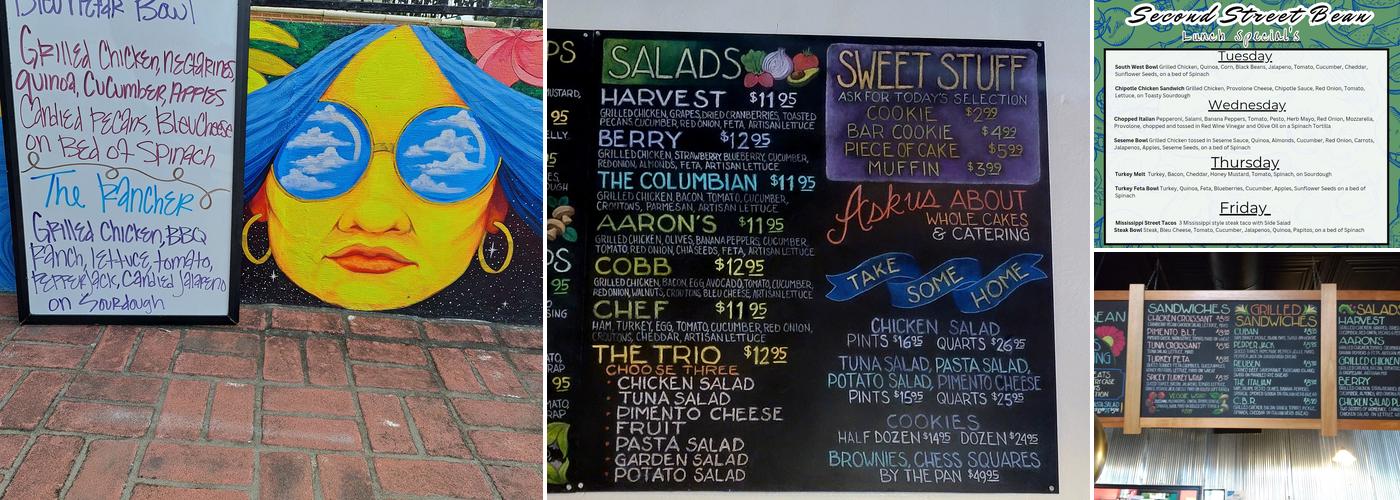 Bleu Petar Bowl
Grilled Chicken, Nectarines,
Quinoa, Cucumber, Apples
Candied Pecans, Bleu Cheese
on Bed of Spinach
The Rancher
Grilled Chicken, BBQ
Ranch, lettuce, tomato,
Pepper Jack, Candied Jalapeno
on Sourdough
SALADS
HARVEST $11.95
GRILLED CHICKEN, GRAPES, DRIED CRANBERRIES, TOASTED
PECANS CUCUMBER, RED ONION, FETA, ARTISAN LETTUCE
BERRY $12.95
GRILLED CHICKEN, STRAWBERRY, BLUEBERRY, CUCUMBER,
RED ONION, ALMONDS, FETA, ARTISAN LETTUCE
THE COLUMBIAN $11.95
GRILLED CHICKEN, BACON, TOMATO, CUCUMBER,
CROUTONS, PARMESAN, ARTISAN LETTUCE
AARON'S $11.95
GRILLED CHICKEN, OLIVES, BANANA PEPPERS, CUCUMBER,
TOMATO, RED ONION, CHIA SEEDS, FETA, ARTISAN LETTUCE
COBB $12.95
GRILLED CHICKEN, BACON, EGG, AVOCADO, TOMATO, CUCUMBER,
RED ONION, WALNUTS, CROUTONS, BLEU CHEESE, ARTISAN LETTUCE
CHEF $11.95
HAM, TURKEY, EGG, TOMATO, CUCUMBER, RED ONION,
CROUTONS, CHEDDAR, ARTISAN LETTUCE
THE TRIO $12.95
CHOOSE THREE
CHICKEN SALAD
TUNA SALAD
PIMENTO CHEESE
FRUIT
PASTA SALAD
GARDEN SALAD
POTATO SALAD
SWEET STUFF
ASK FOR TODAY'S SELECTION
COOKIE $2.99
BAR COOKIE $4.99
PIECE OF CAKE $5.99
MUFFIN $3.99
Ask us ABOUT
WHOLE CAKES
& CATERING
TAKE SOME HOME
CHICKEN SALAD
PINTS $16.95 QUARTS $26.95
TUNA SALAD, PASTA SALAD,
POTATO SALAD, PIMENTO CHEESE
PINTS $15.95 QUARTS $25.95
COOKIES
HALF DOZEN $14.95 DOZEN $24.95
BROWNIES, CHESS SQUARES
BY THE PAN $49.95
Second Street Bean
Lunch Special's
Tuesday
South West Bowl Grilled Chicken, Quinoa, Corn, Black Beans, Jalapeno, Tomato, Cucumber, Cheddar,
Sunflower Seeds, on a bed of Spinach
Chipotle Chicken Sandwich Grilled Chicken, Provolone Cheese, Chipotle Sauce, Red Onion, Tomato,
Lettuce, on Toasty Sourdough
Wednesday
Chopped Italian Pepperoni, Salami, Banana Peppers, Tomato, Pesto, Herb Mayo, Red Onion, Mozzerella,
Provolone, chopped and tossed in Red Wine Vinegar and Olive Oil on a Spinach Tortilla
Seseme Bowl Grilled Chicken tossed in Seseme Sauce, Quinoa, Almonds, Cucumber, Red Onion, Carrots,
Jalapenos, Apples, Seseme Seeds, on a bed of Spinach
Thursday
Turkey Melt Turkey, Bacon, Cheddar, Honey Mustard, Tomato, Spinach, on Sourdough
Turkey Feta Bowl Turkey, Quinoa, Feta, Blueberries, Cucumber, Apples, Sunflower Seeds on a bed of
Spinach
Friday
Mississippi Street Tacos 3 Mississippi style steak taco with Side Salad
Steak Bowl Steak, Bleu Cheese, Tomato, Cucumber, Jalapenos, Quinoa, Papitos, on a bed of Spinach
SANDWICHES
CHICKEN CROISSANT
PIMENTO B.L.T.
TUNA CROISSANT
TURKEY FETA
SPICEY TURKEY WRAP
VEGGIE WRAP
GRILLED
SANDWICHES
CUBAN
PEPPER JACK
REUBEN
THE ITALIAN
C.B.R.
SALADS
HARVEST
AARON'S
COBB
BERRY